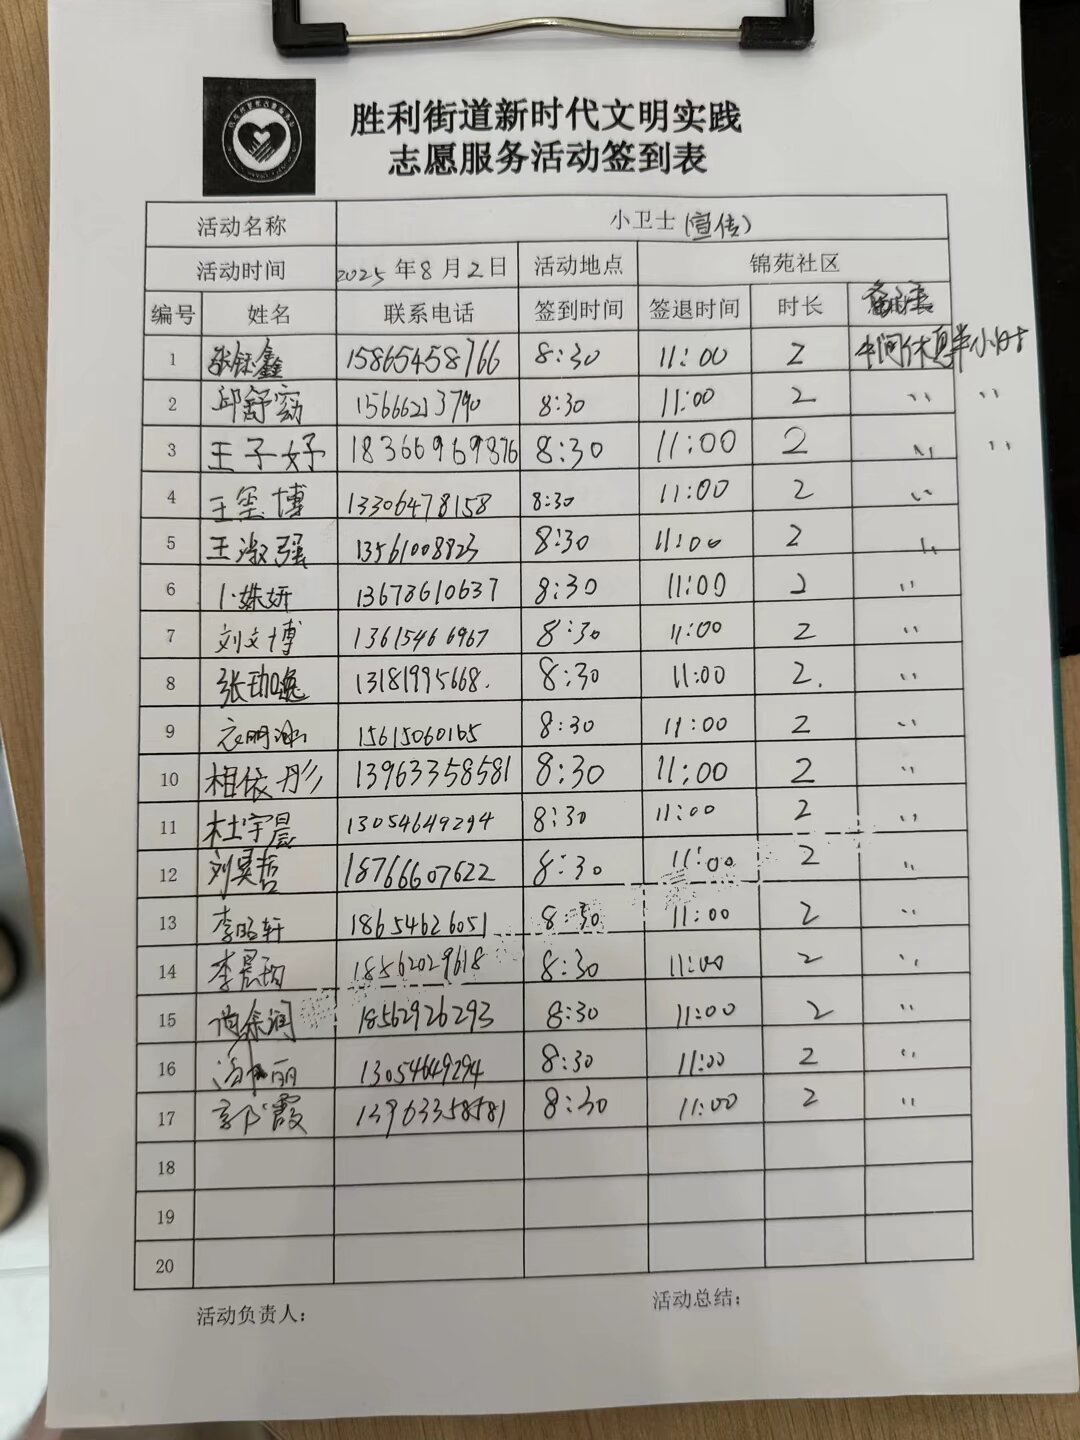 胜利街道新时代文明实践
志愿服务活动签到表
活动名称 小卫士(宣传)
活动时间 2025年8月2日 活动地点 锦苑社区
编号 姓名 联系电话 签到时间 签退时间 时长
1 张钰鑫 15865458766 8:30 11:00 2 中间休息半小时
2 邱舒窈 15666213790 8:30 11:00 2 〃 〃
3 王子妤 18366969876 8:30 11:00 2 〃 〃
4 王玺博 13306478158 8:30 11:00 2 〃
5 王淑强 13561008823 8:30 11:00 2 〃
6 卜姝妍 13678610637 8:30 11:00 2 〃
7 刘文博 13615466967 8:30 11:00 2 〃
8 张珈逸 13181995668. 8:30 11:00 2. 〃
9 衣明 15615060165 8:30 11:00 2 〃
10 相依彤 13963358581 8:30 11:00 2 〃
11 杜宇晨 13054649294 8:30 11:00 2 〃
12 刘昊哲 18766607622 8:30 11:00 2 〃
13 李昭轩 18654626051 8:30 11:00 2 〃
14 李晨昀 18562029618 8:30 11:00 2 〃
15 18562926293 8:30 11:00 2 〃
16 丽 13054649294 8:30 11:00 2 〃
17 郭霞 13963358581 8:30 11:00 2 〃
18
19
20
活动负责人: 活动总结: